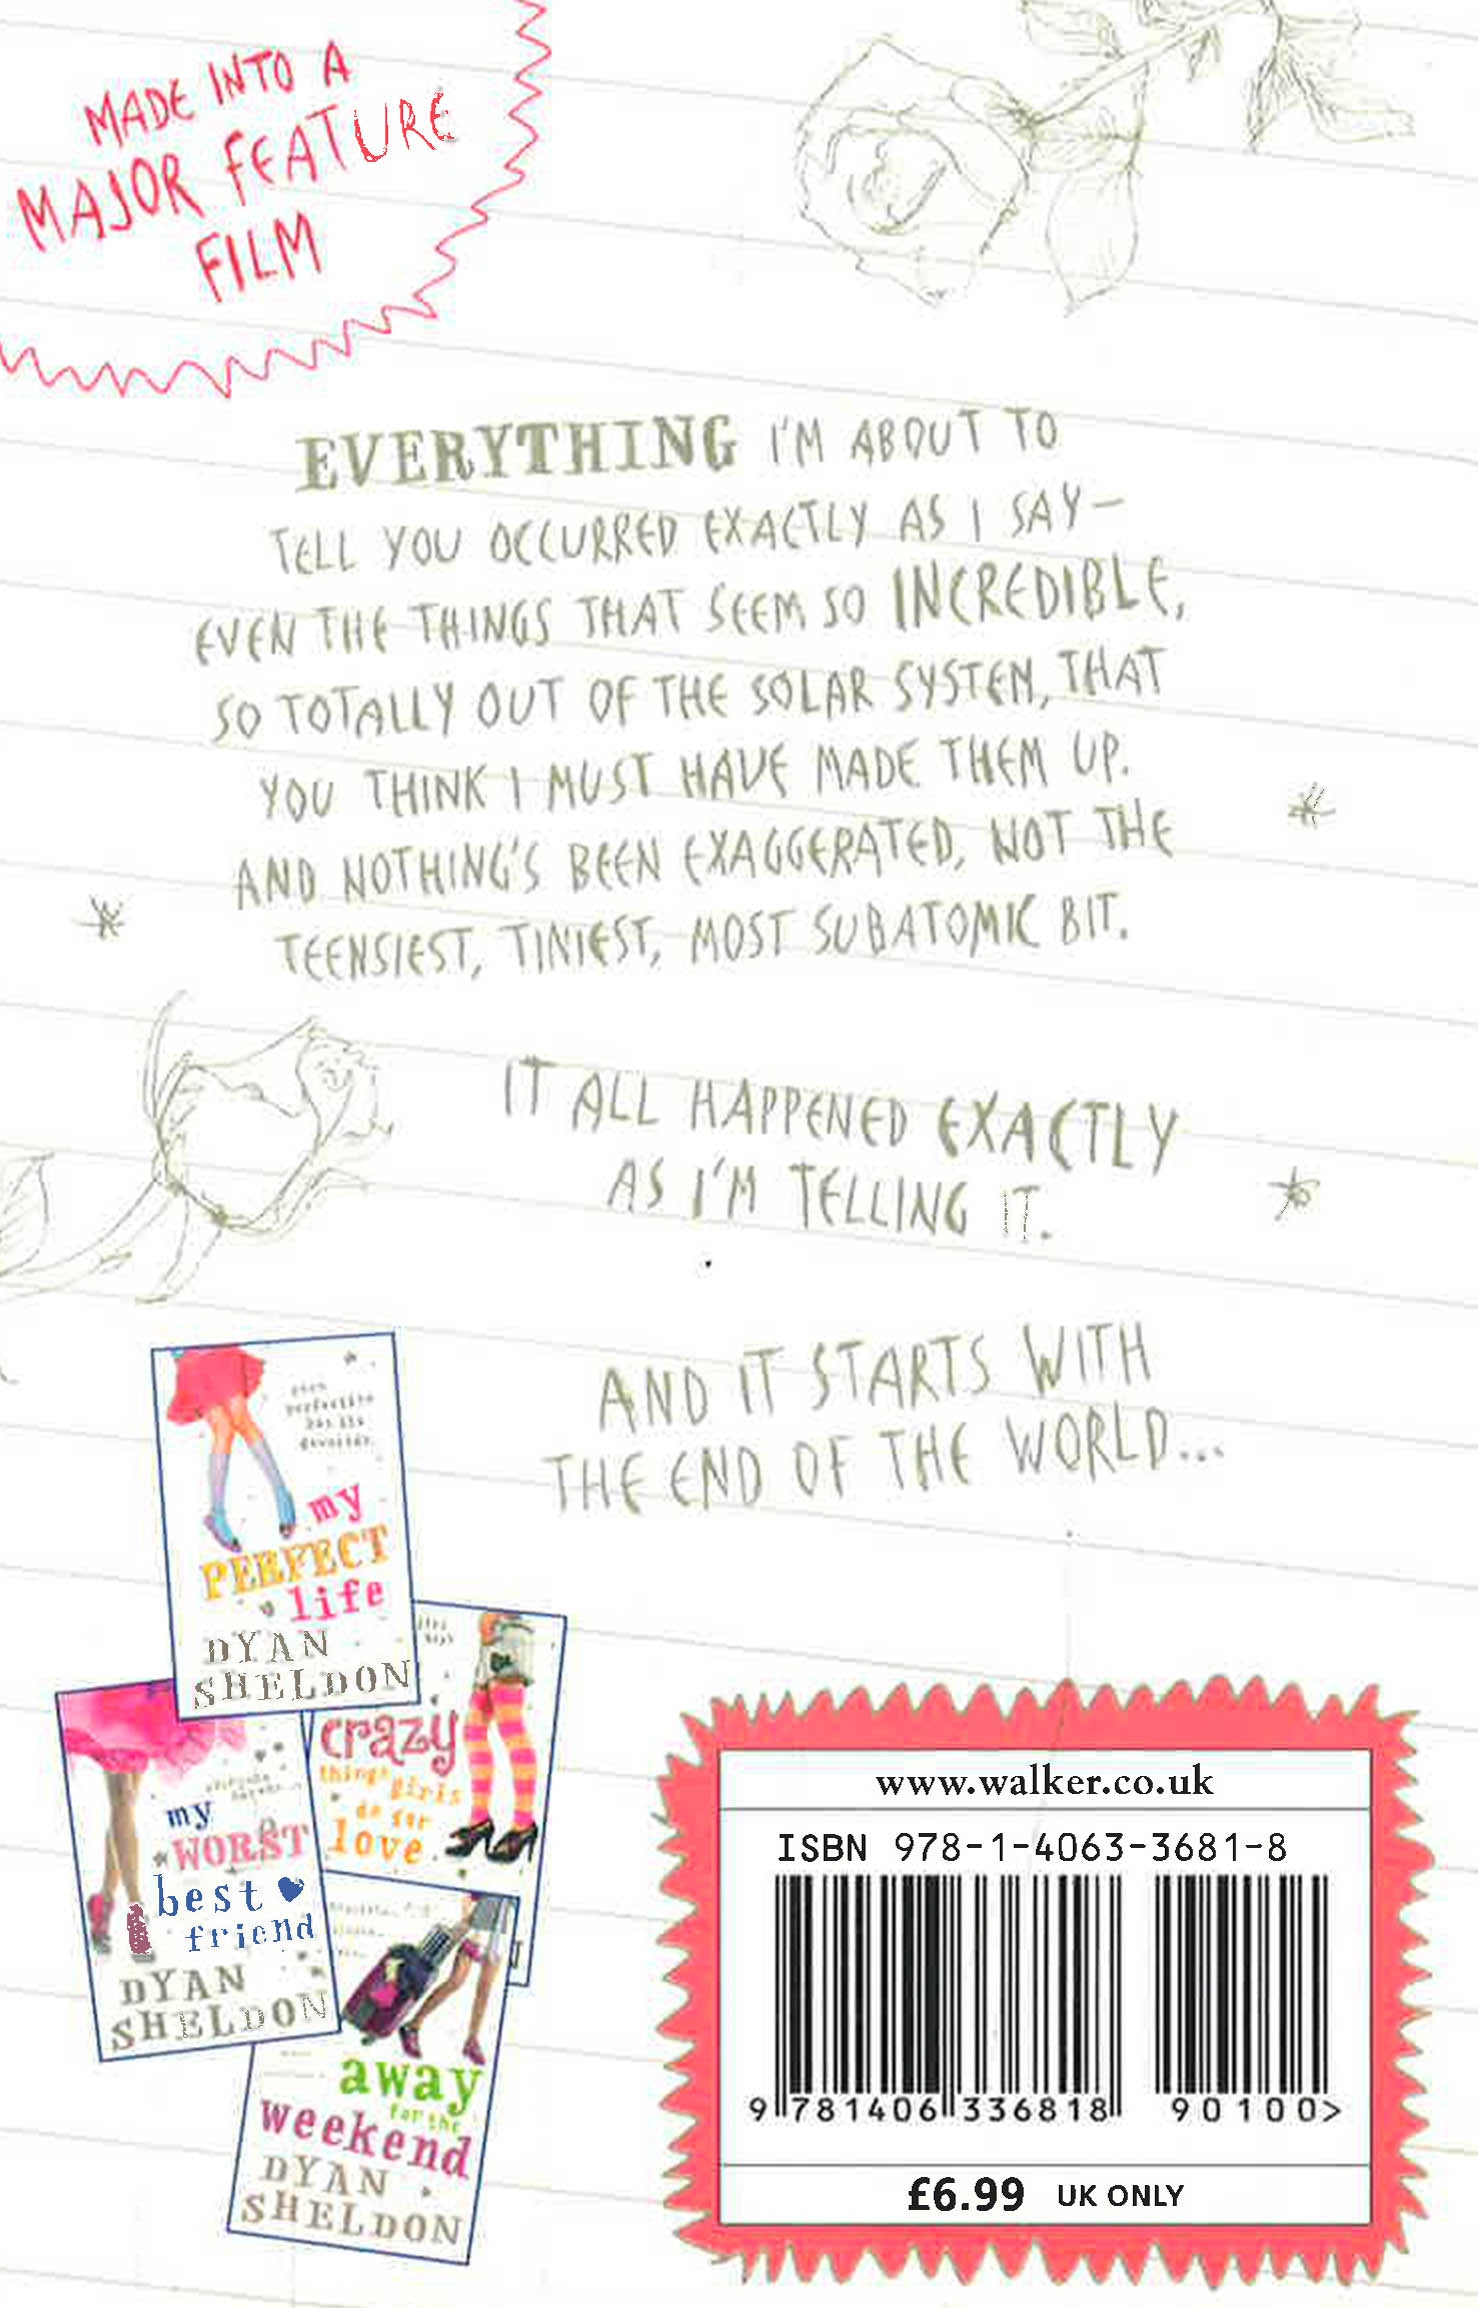 MADE INTO A
MAJOR FEATURE
FILM
EVERYTHING I'M ABOUT TO
TELL YOU OCCURRED EXACTLY AS I SAY–
EVEN THE THINGS THAT SEEM SO INCREDIBLE,
SO TOTALLY OUT OF THE SOLAR SYSTEM, THAT
YOU THINK I MUST HAVE MADE THEM UP.
AND NOTHING'S BEEN EXAGGERATED, NOT THE
TEENSIEST, TINIEST, MOST SUBATOMIC BIT.
IT ALL HAPPENED EXACTLY
AS I'M TELLING IT.
AND IT STARTS WITH
THE END OF THE WORLD...
even
perfection
has its
downside.
my
PERFECT
life
DYAN
SHELDON
crazy
things girls
do for
love
my
WORST
best
friend
DYAN
SHELDON
away
for the
weekend
DYAN
SHELDON
www.walker.co.uk
ISBN 978-1-4063-3681-8
9 781406 336818
90100>
£6.99 UK ONLY